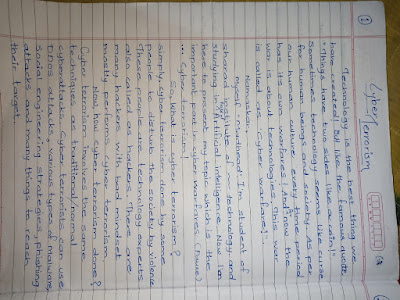 ①
Cyber Terrorism
Technology is the best thing we
have created! Like the famous quote
"Things have two sides like a coin".
Sometimes technology seems like curse
for human beings and society. As per
our human culture, each time period
has its warfares! And now the
war is about technologies. This war
is called as 'cyber warfare'.
Namaskar!
Myself I'm student of
Institute of technology and
studying in Artificial intelligence. Now I'm
here to present my topic which is the
important part in cyber warfares (Pause)
... Cyber terrorism!
So, what is cyber terrorism?
Simply, cyber terrorism done by some
people to disturb the society by violence.
These people are technology experts
also known as hackers. There are
many hackers with bad mindset
mostly performs cyber terrorism.
Now, how cyber terrorism done?
Cyber terrorism involves same
techniques as traditional/normal
cyberattacks. Cyber terrorists can use
DDos attacks, various types of malwares,
Social engineering strategies, phishing
attacks and many things to reach
their target.